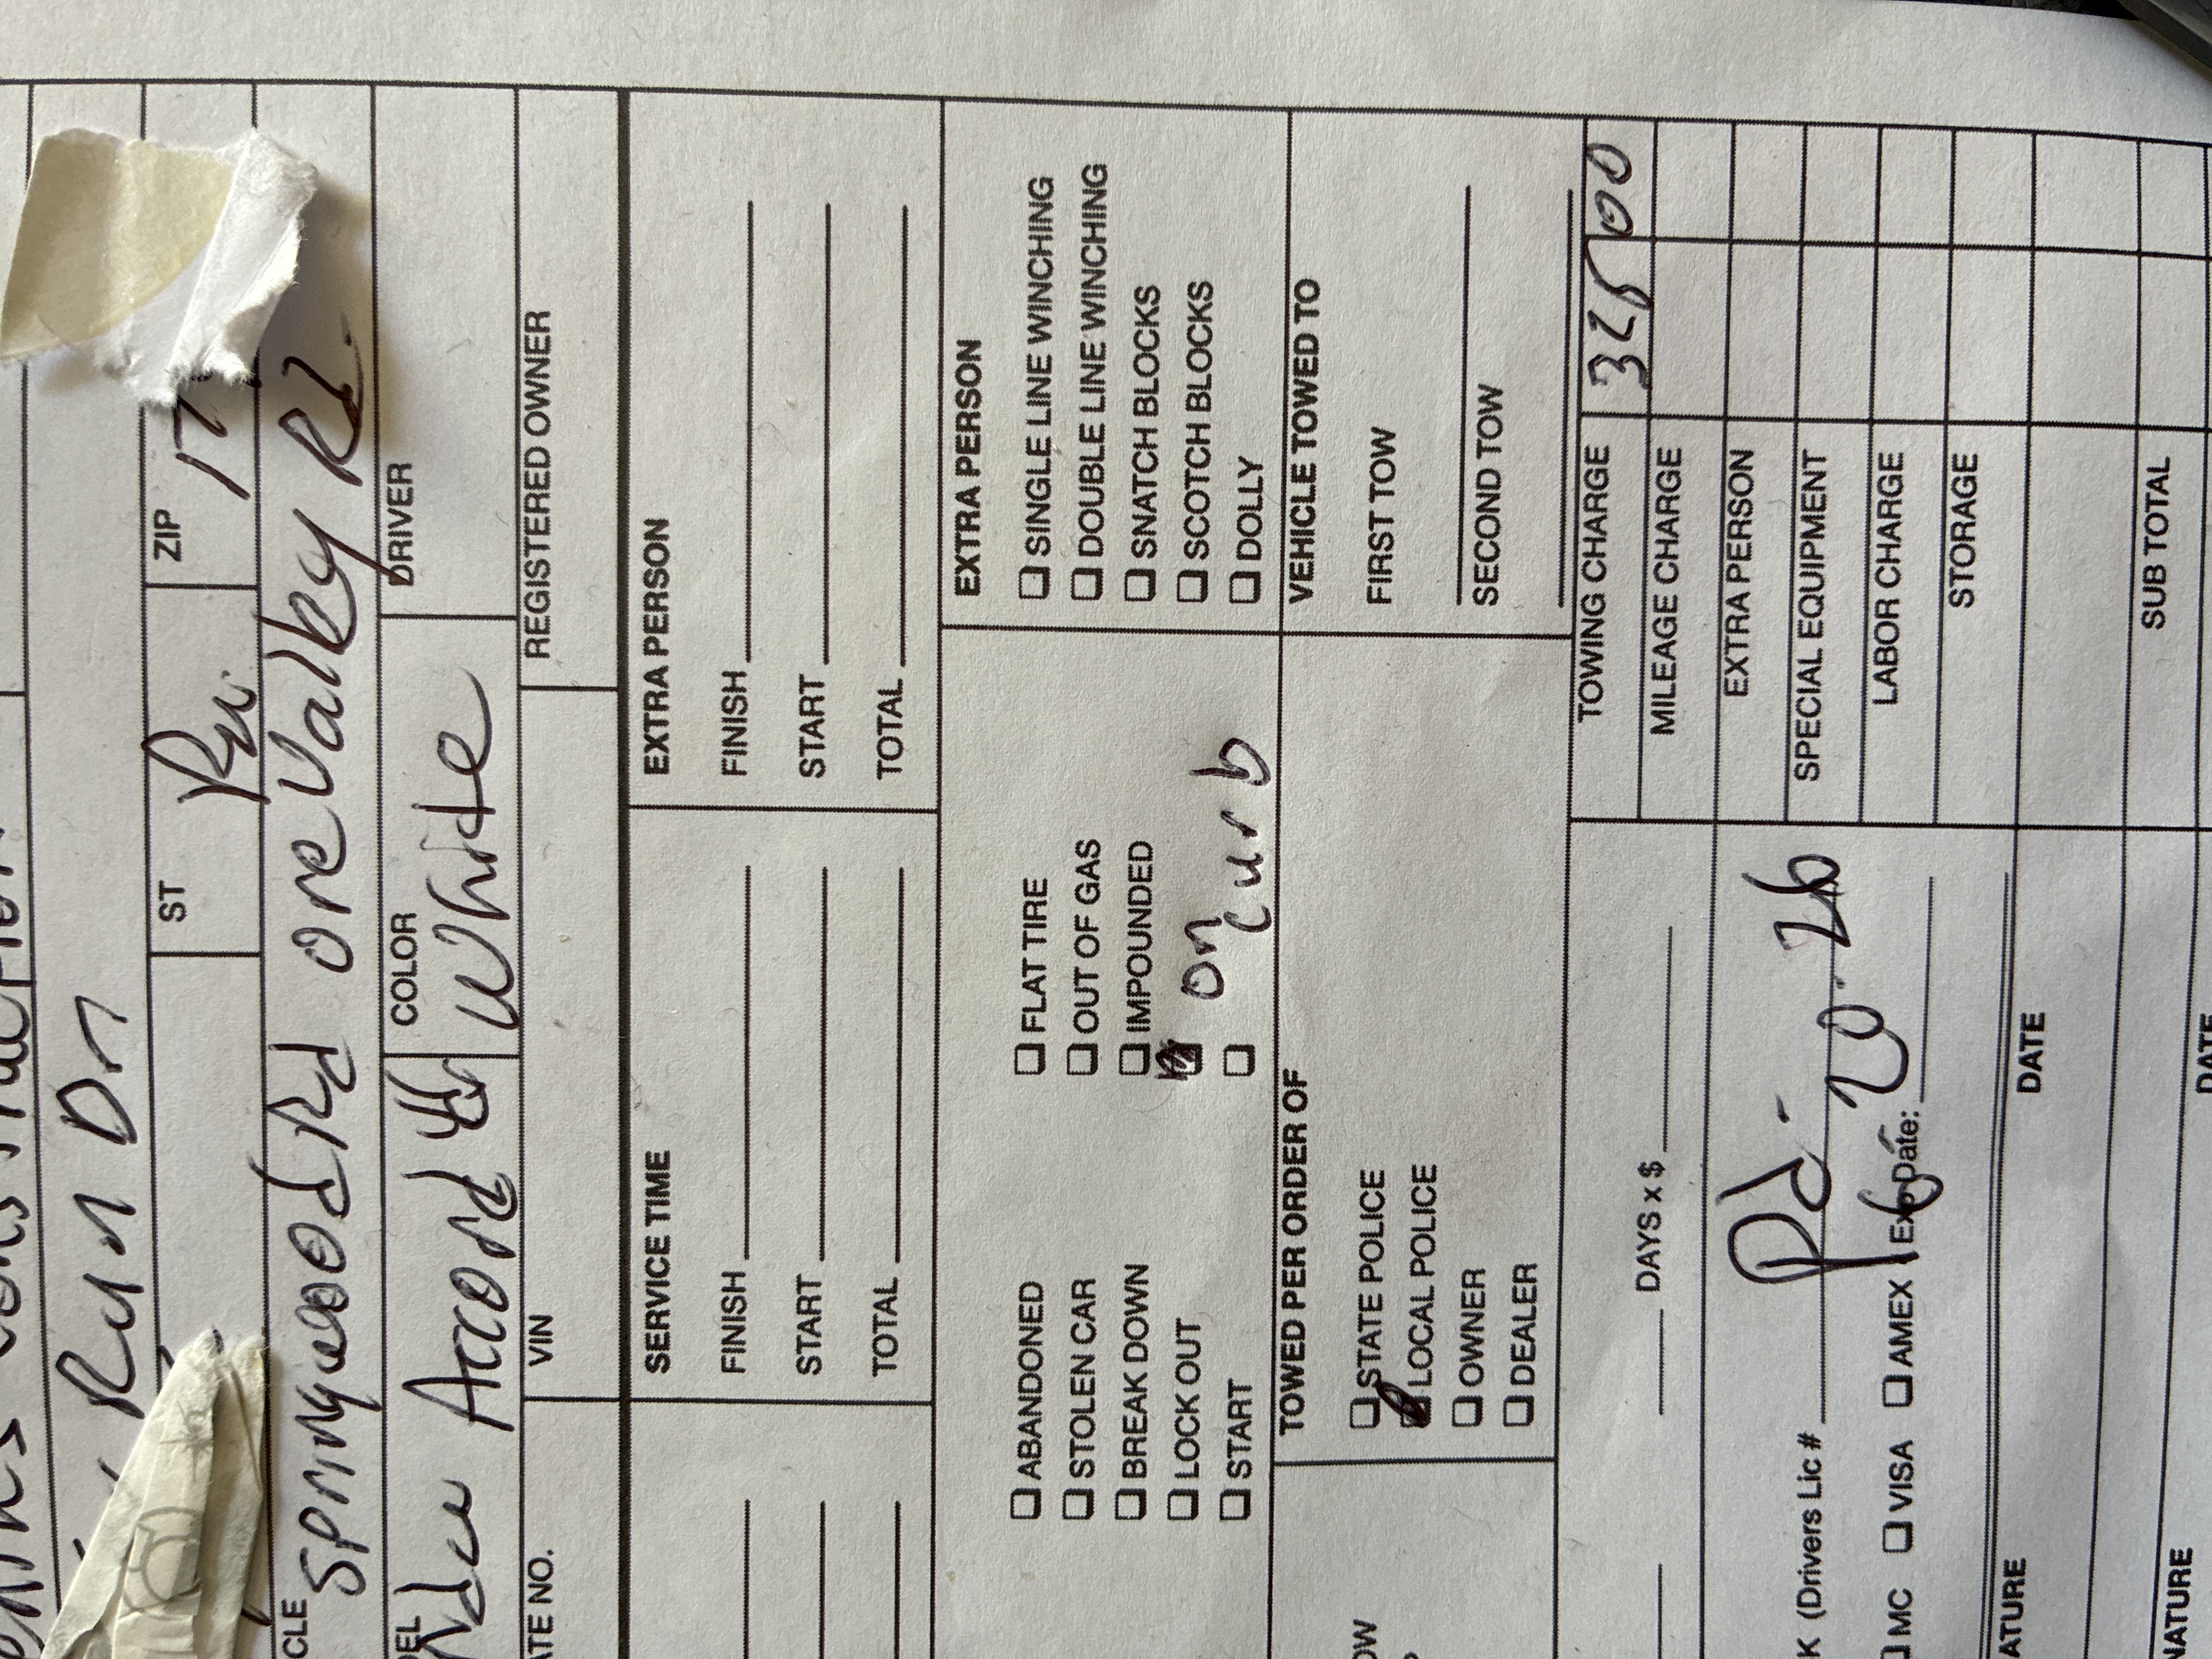 Run Dr
ST Pa. ZIP 17
CLE Springwood Rd ore Valley Rd.
DEL Accord COLOR White DRIVER
ATE NO. VIN REGISTERED OWNER
SERVICE TIME EXTRA PERSON
FINISH FINISH
START START
TOTAL TOTAL
EXTRA PERSON
❏ ABANDONED ❏ FLAT TIRE ❏ SINGLE LINE WINCHING
❏ STOLEN CAR ❏ OUT OF GAS ❏ DOUBLE LINE WINCHING
❏ BREAK DOWN ❏ IMPOUNDED ❏ SNATCH BLOCKS
❏ LOCK OUT on ❏ SCOTCH BLOCKS
❏ START ❏ curb ❏ DOLLY
OW TOWED PER ORDER OF VEHICLE TOWED TO
❏ STATE POLICE FIRST TOW
❏ LOCAL POLICE
❏ OWNER SECOND TOW
❏ DEALER
TOWING CHARGE 325 00
DAYS x $ MILEAGE CHARGE
Pd. EXTRA PERSON
K (Drivers Lic # SPECIAL EQUIPMENT
❏ MC ❏ VISA ❏ AMEX Exp Date: LABOR CHARGE
STORAGE
ATURE DATE
SUB TOTAL
NATURE DATE